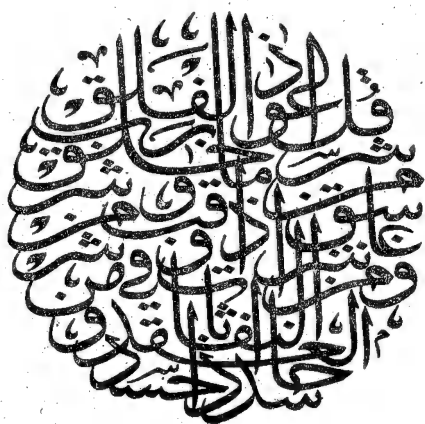 قل اعوذ برب الفلق
من شر ما خلق ومن شر
غاسق اذا وقب
ومن شر النفاثات في العقد
ومن شر حاسد اذا حسد